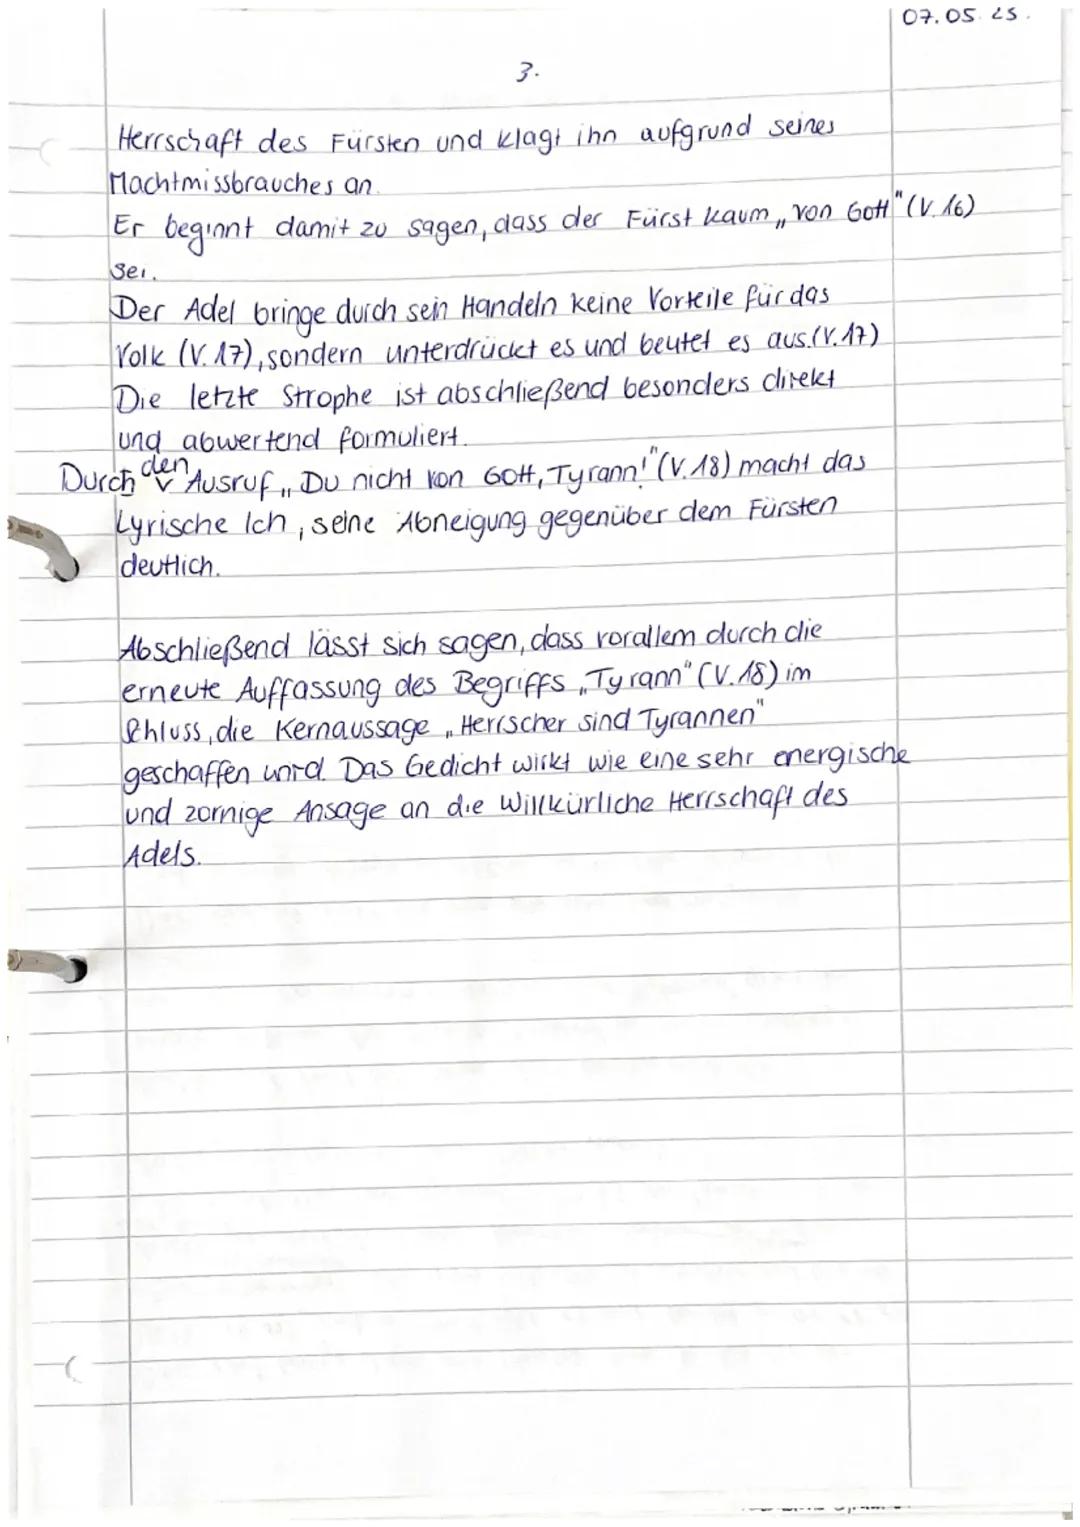 07.05.25.
3.
Herrschaft des Fürsten und klagt ihn aufgrund seines
Machtmissbrauches an.
Er beginnt damit zu sagen, dass der Fürst kaum „von Gott" (V.16)
sei.
Der Adel bringe durch sein Handeln keine Vorteile für das
Volk (V.17), sondern unterdrückt es und beutet es aus.(V.17)
Die letzte Strophe ist abschließend besonders direkt
und abwertend formuliert.
Durch den Ausruf „Du nicht von Gott, Tyrann!" (V.18) macht das
Lyrische Ich, seine Abneigung gegenüber dem Fürsten
deutlich.
Abschließend lässt sich sagen, dass vorallem durch die
erneute Auffassung des Begriffs „Tyrann" (V.18) im
Schluss, die Kernaussage „Herrscher sind Tyrannen"
geschaffen wird. Das Gedicht wirkt wie eine sehr energische
und zornige Ansage an die Willkürliche Herrschaft des
Adels.